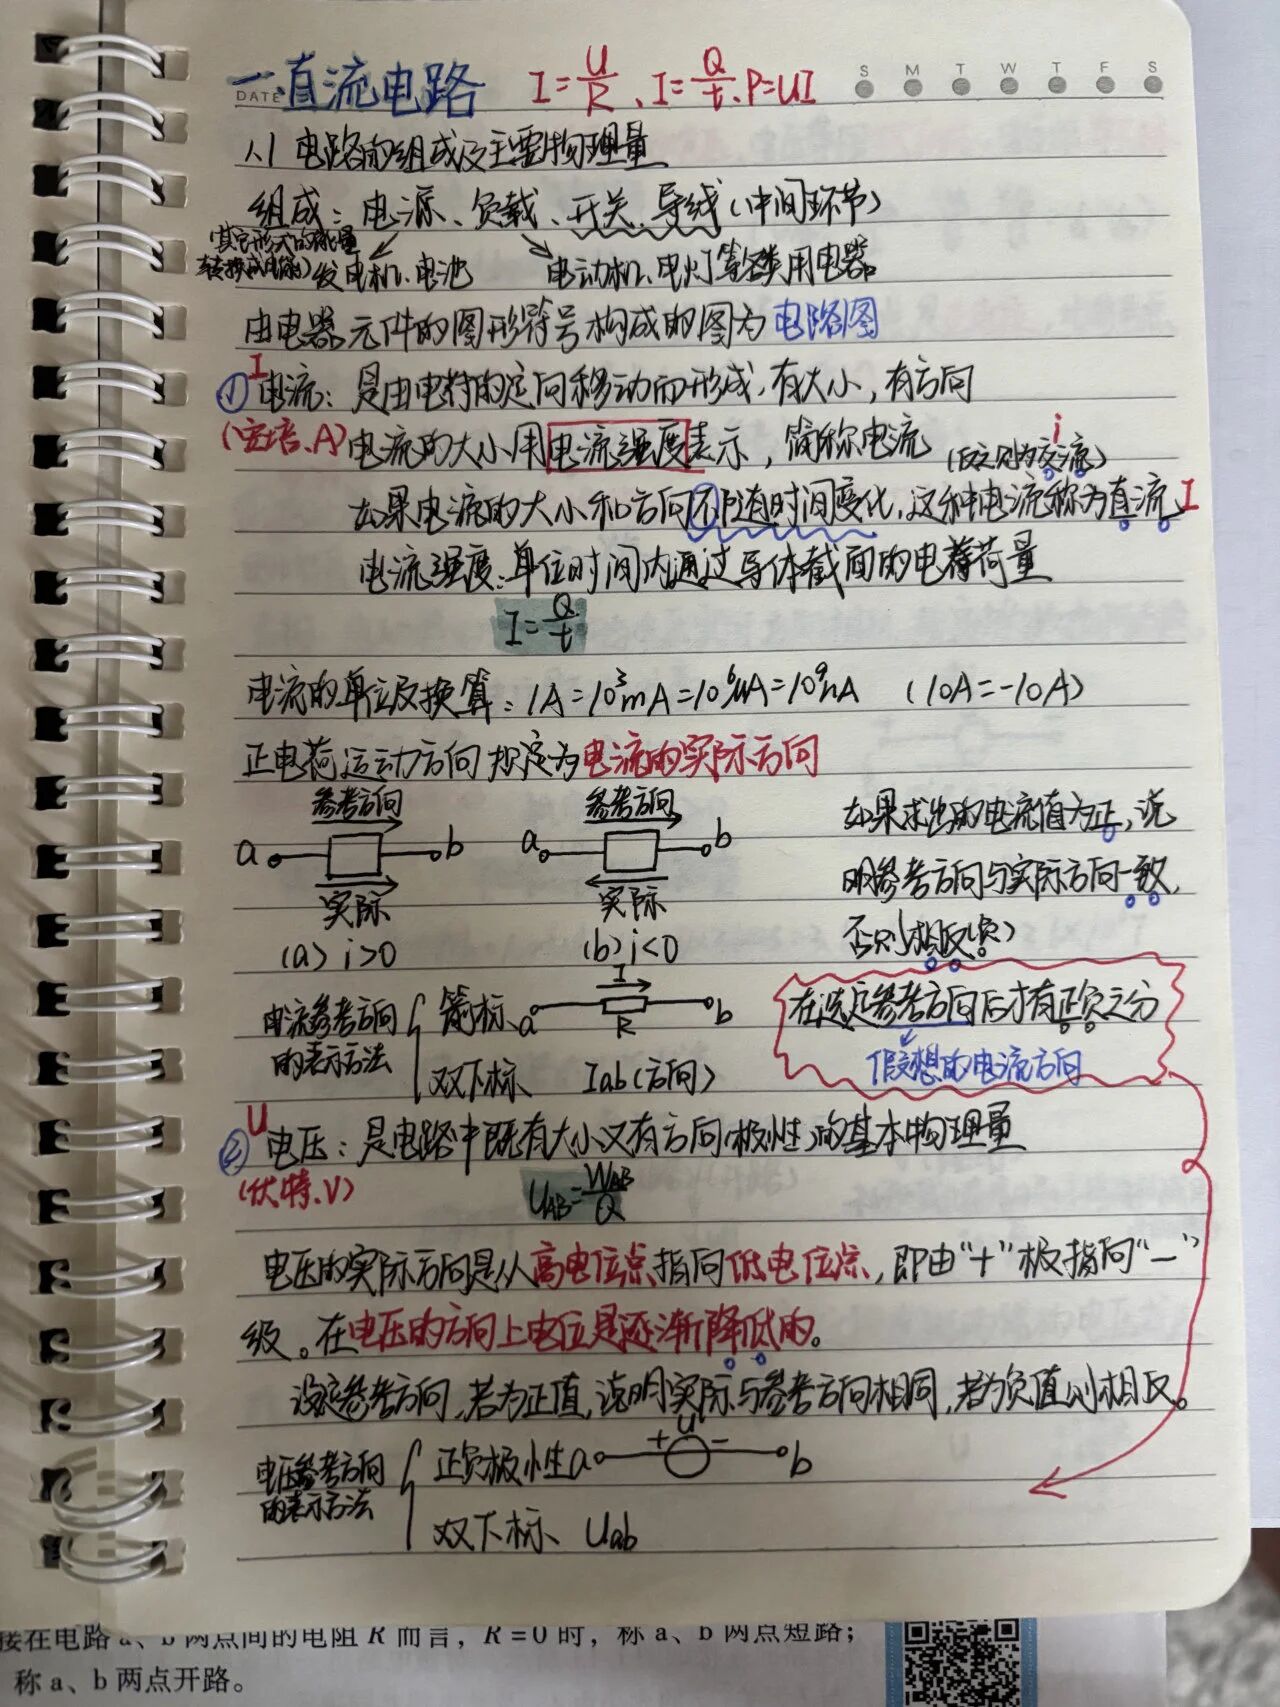 一.直流电路 I=U/R、I=Q/t、P=UI
DATE S M T W T F S
1.1 电路的组成及主要物理量
组成：电源、负载、开关、导线(中间环节)
(其它形式的能量转换成电能)发电机、电池 电动机、电灯等各类用电器
由电器元件的图形符号构成的图为电路图
① I 电流：是由电荷的定向移动而形成，有大小，有方向
(安培、A) 电流的大小用电流强度表示，简称电流 (反之则为交流) i
如果电流的大小和方向不随时间变化，这种电流称为直流 I
电流强度：单位时间内通过导体截面的电荷量
I=Q/t
电流的单位及换算：1A=10³mA=10⁶μA=10⁹nA (10A=-10A)
正电荷运动方向规定为电流的实际方向
参考方向 参考方向
a b a b
实际 实际
(a) i>0 (b) i<0
如果求出的电流值为正，说
明参考方向与实际方向一致，
否则相反(负)
电流参考方向的表示方法
箭标 a I R b
双下标 Iab(方向)
在选定参考方向后才有正负之分
假想的电流方向
② U 电压：是电路中既有大小又有方向(极性)的基本物理量
(伏特、V) UAB=WAB/Q
电压的实际方向是从高电位点指向低电位点，即由“+”极指向“-”
级。在电压的方向上电位是逐渐降低的。
设定参考方向，若为正值，说明实际与参考方向相同，若为负值则相反。
电压参考方向的表示方法
正负极性 a + u - b
双下标、Uab
接在电路 a、b 两点间的电阻 R 而言，R=0 时，称 a、b 两点短路；
称 a、b 两点开路。